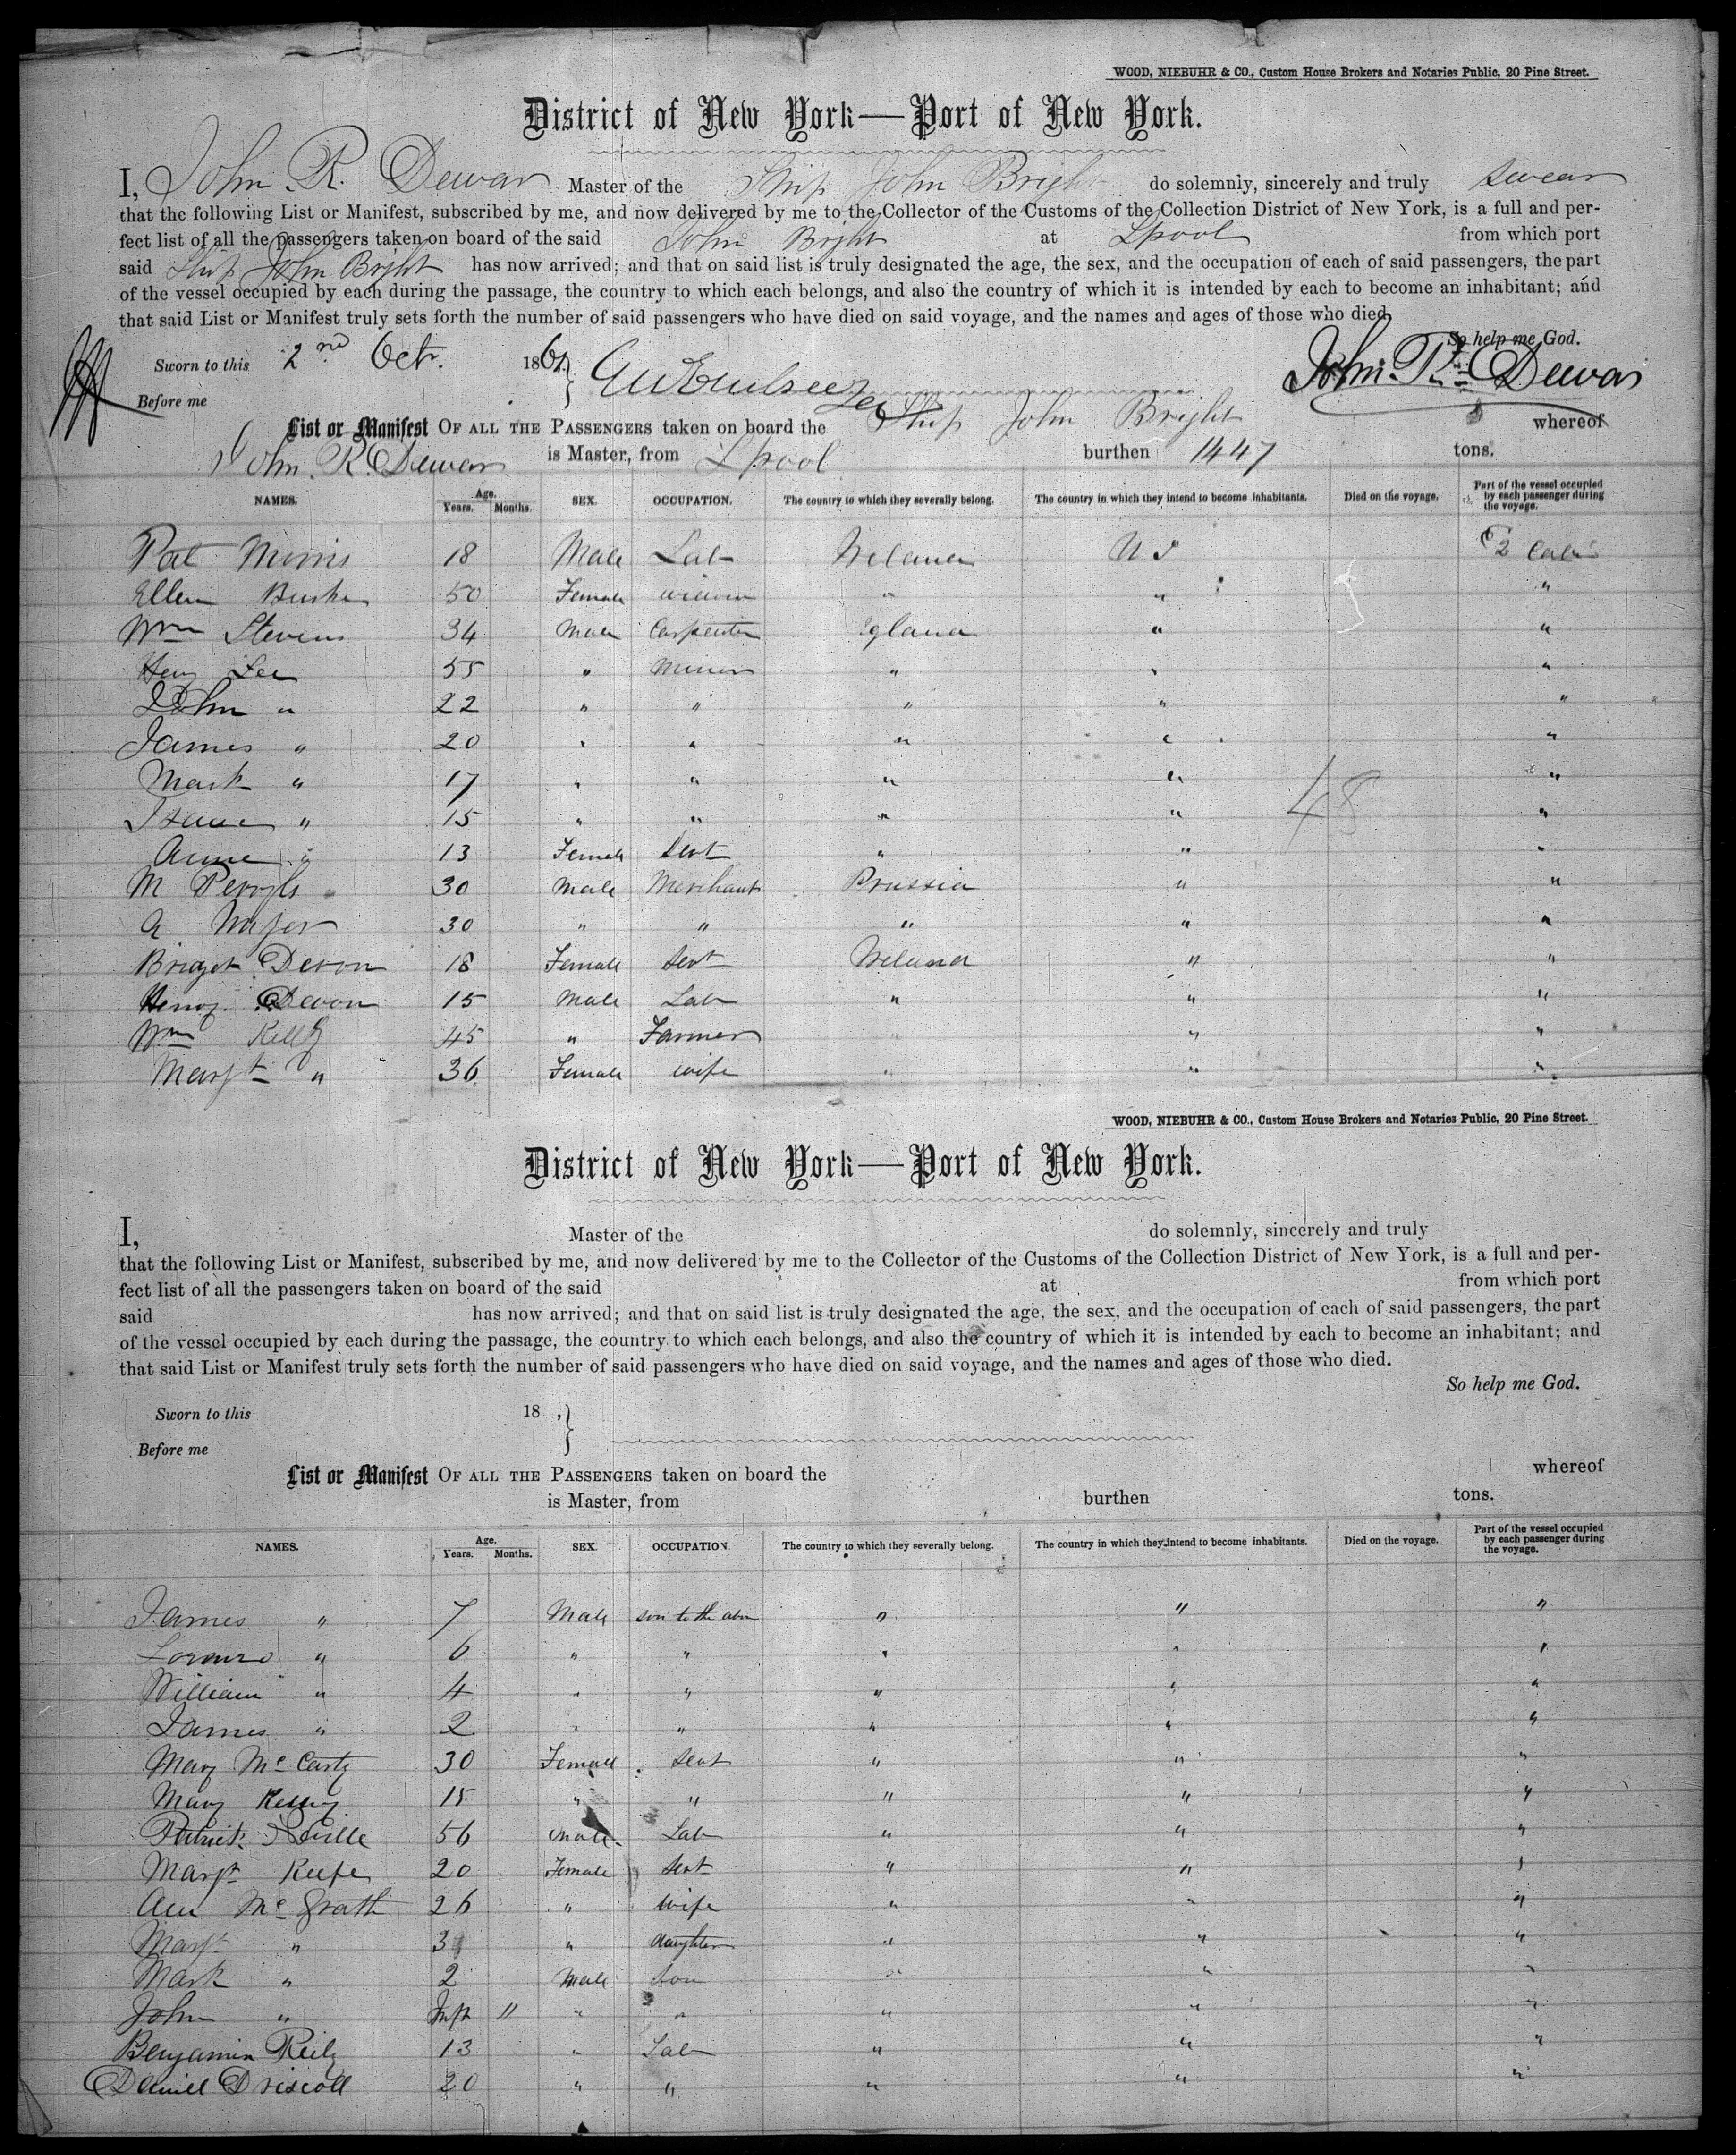 WOOD, NIEBUHR & CO., Custom House Brokers and Notaries Public, 20 Pine Street.
District of New York—Port of New York.
I, John R. Dewar Master of the Ship John Bright do solemnly, sincerely and truly swear
that the following List or Manifest, subscribed by me, and now delivered by me to the Collector of the Customs of the Collection District of New York, is a full and per-
fect list of all the passengers taken on board of the said John Bright at Lpool from which port
said Ship John Bright has now arrived; and that on said list is truly designated the age, the sex, and the occupation of each of said passengers, the part
of the vessel occupied by each during the passage, the country to which each belongs, and also the country of which it is intended by each to become an inhabitant; and
that said List or Manifest truly sets forth the number of said passengers who have died on said voyage, and the names and ages of those who died.
So help me God.
Sworn to this 2nd Octr. 186 John R. Dewar
Before me
List or Manifest OF ALL THE PASSENGERS taken on board the Ship John Bright whereof
John R. Dewar is Master, from Lpool burthen 1447 tons.
NAMES. Age. Years. Months. SEX. OCCUPATION. The country to which they severally belong. The country in which they intend to become inhabitants. Died on the voyage. Part of the vessel occupied by each passenger during the voyage.
Pat Morris 18 Male Lab Ireland U S 2 Cabin
Ellen Burke 50 Female widow " " "
Wm Stevens 34 Male Carpenter England " "
Heny Lee 55 " Miner " " "
John " 22 " " " " "
James " 20 " " " " "
Mark " 17 " " " " "
Isaac " 15 " " " " "
48
Anne " 13 Female Servt " " "
M 30 Male Merchant Prussia " "
A 30 " " " " "
Bridget Devon 18 Female Servt Ireland " "
Henry Devon 15 Male Lab " " "
Wm Kelly 45 " Farmer " "
Margt " 36 Female wife " " "
WOOD, NIEBUHR & CO., Custom House Brokers and Notaries Public, 20 Pine Street.
District of New York—Port of New York.
I, Master of the do solemnly, sincerely and truly
that the following List or Manifest, subscribed by me, and now delivered by me to the Collector of the Customs of the Collection District of New York, is a full and per-
fect list of all the passengers taken on board of the said at from which port
said has now arrived; and that on said list is truly designated the age, the sex, and the occupation of each of said passengers, the part
of the vessel occupied by each during the passage, the country to which each belongs, and also the country of which it is intended by each to become an inhabitant; and
that said List or Manifest truly sets forth the number of said passengers who have died on said voyage, and the names and ages of those who died.
So help me God.
Sworn to this 18 ,
Before me
List or Manifest OF ALL THE PASSENGERS taken on board the whereof
is Master, from burthen tons.
NAMES. Age. Years. Months. SEX. OCCUPATION. The country to which they severally belong. The country in which they intend to become inhabitants. Died on the voyage. Part of the vessel occupied by each passenger during the voyage.
James " 7 Male son to the above " " "
Lorenzo " 6 " " " " "
William " 4 " " " " "
James " 2 " " " " "
Mary McCarty 30 Female Servt " " "
Mary 15 " " " " "
Patrick Neville 56 Male Lab " " "
Margt Keefe 20 Female Servt " " "
Ann McGrath 26 " wife " " "
Margt " 3 " daughter " " "
Mark " 2 Male Son " " "
John " Inft " " " " " "
Benjamin Reily 13 " Lab " " "
Daniel Driscoll 20 " " " " "